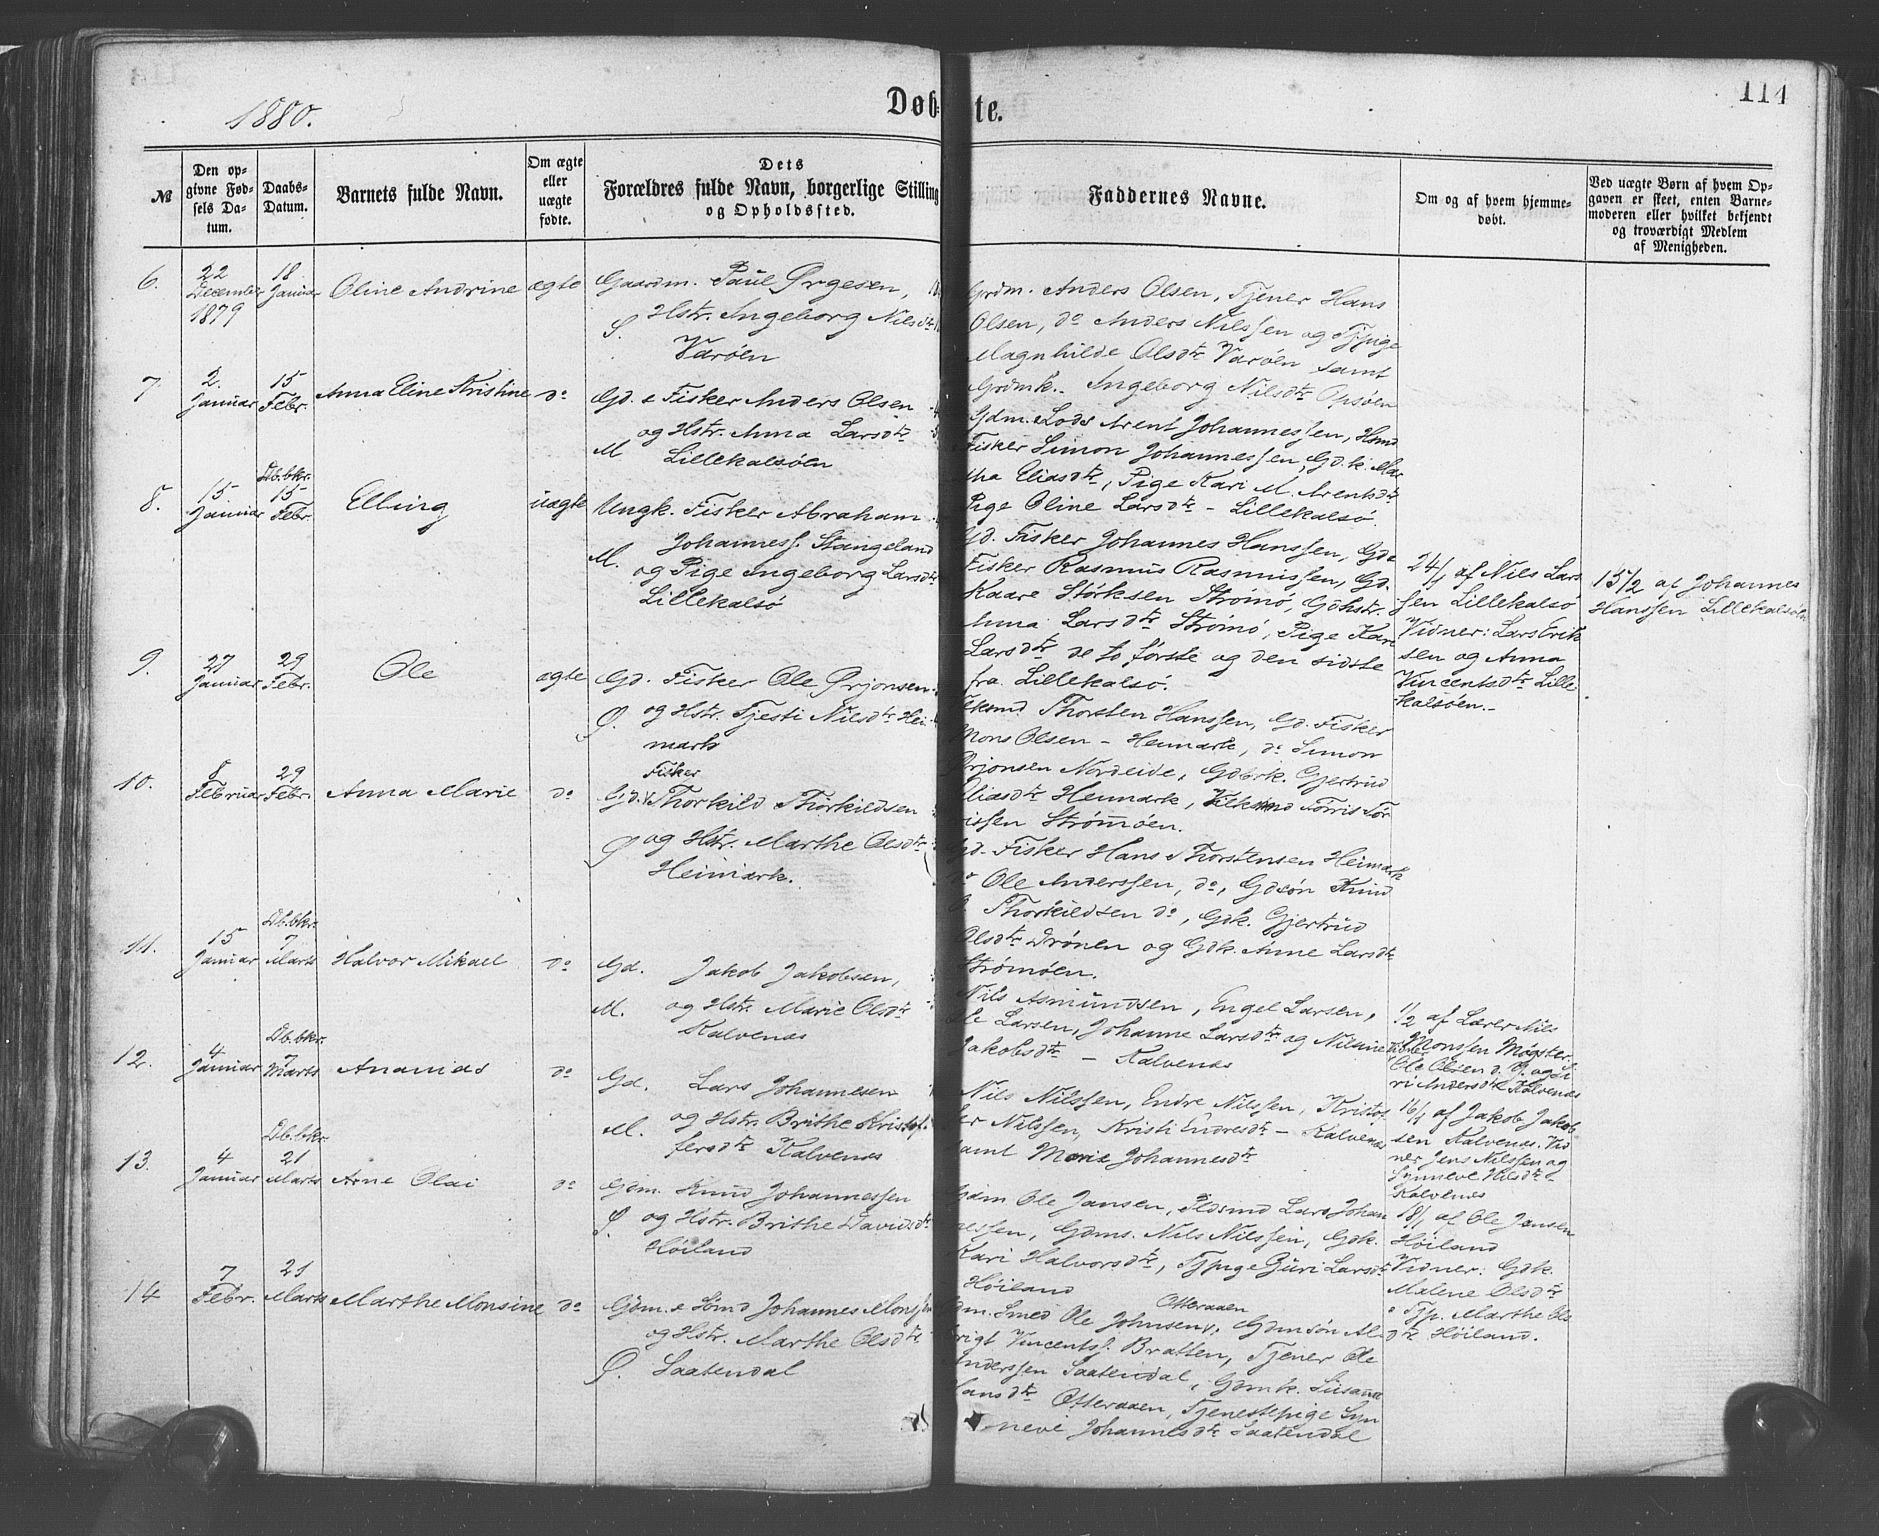 114
1880.
Døbte.
№
Den opgivne Fødsels Datum.
Daabs-Datum.
Barnets fulde Navn.
Om ægte eller uægte fødte.
Dets Forældres fulde Navn, borgerlige Stilling og Opholdssted.
Faddernes Navne.
Om og af hvem hjemmedøbt.
Ved uægte Børn af hvem Opgaven er skeet, enten Barnemoderen eller hvilket bekjendt og troværdigt Medlem af Menigheden.
6.
22 December 1879
18 Januar
Oline Andrine
ægte
Gaardm. Paul Ørgesen,
Hstr. Ingeborg Nilsdtr
Varøen
Grdm. Anders Olsen, Tjener Hans
Olsen, do Anders Nilssen og Tjpige
Magnhilde Olsdtr Varøen samt
Grdmk. Ingeborg Nilsdtr Opsøen
7
2. Januar
15 Febr.
Anna Eline Kristine
do
Gd. & Fisker Anders Olsen
og Hstr. Anna Larsdtr
M Lillekalsøen
Gdm. & Lods Arent Johannessen, Hsmd
Fisker Simon Johannessen, Gd.k. Mar
tha Eliasdtr, Pige Kari M. Arentsdtr
Pige Oline Larsdtr - Lillekalsø.
8.
15 Januar
Db.bkr. 15 Febr.
Elling
uægte
Ungk. Fisker Abraham
Johanness. Stangeland
M. og Pige Ingeborg Larsdtr
Lillekalsø
Gd. Fisker Johannes Hanssen, Gd &
Fisker Rasmus Rasmussen, Gd.
Kaare Størksen Strømø, Gdhstr.
Anna Larsdtr Strømø, Pige Kari
Larsdtr de to første og den sidste
fra Lillekalsø.
24/1 af Nils Lars
sen Lillekalsø
Vidner: Lars Erik
sen og Anna
Vincentsdtr Lille
kalsøen.
15/2 af Johannes
Hanssen Lillekalsøen
9.
27 Januar
29 Febr.
Ole
ægte
Gd. Fisker Ole Ørjonsen
Ø. og Hstr. Tjesti Nilsdtr Hei
mark
Thorsten Hanssen, Gd. Fisker
Mons Olsen - Heimark, do Simon
Ørjonsen Nordeide, Gdbrk. Gjertrud
Eliasdtr Heimark, Torris Tor
rissen Strømøen.
10.
8 Februar
29 Febr.
Anna Marie
do
Fisker
Gd. Thorkild Thorkildsen
Ø og Hstr. Marthe Olsdtr
Heimark.
Gd. Fisker Hans Thorstensen Heimark
do Ole Anderssen, do, Gdsøn Knud
Thorkildsen do, Gdk. Gjertrud
Olsdtr Drønen og Gdk. Anne Larsdtr
Strømøen.
11.
15 Januar
Db.bkr. 7 Marts
Halvor Mikael
do
Gd. Jakob Jakobsen,
M. og Hstr. Marie Olsdtr
Kalvenes
Nils Asmundsen, Engel Larsen,
Ole Larsen, Johanne Larsdtr og Nilsine
Jakobsdtr - Kalvenes
1/2 af Lærer Nils
Monssen Møgster.
Ole Olsen
ri Andersdtr Kalvenes
12.
4 Januar
Db.bkr. 7 Marts
Ananias
do
Gd. Lars Johannesen
M. og Hstr. Brithe Kristof
fersdtr Kalvenes
Nils Nilssen, Endre Nilssen, Kristof
fer Nilssen, Kristi Endresdtr - Kalvenes
samt Marie Johannesdtr
16/1 af Jakob Jakob
sen Kalvenes. Vid
ner Jens Nilssen og
Synneve Nilsdtr
Kalvenes
13.
4 Januar
Db.bkr. 21 Marts
Arne Olai
do
Gdm. Knud Johannessen
Ø. og Hstr. Brithe Davidsdtr
Høiland
Gdm Ole Jansen, Pldsmd Lars Johan
nessen, Gdms. Nils Nilssen, Gdk.
Kari Halvorsdtr, Tjpige Guri Larsdtr
Høiland
18/1 af Ole Jansen
Høiland
Vidner: Gdk.
Malene Olsdtr
& Tjp. Marthe Ols
dtr Høiland.
14
7 Febr.
21 Marts
Marthe Monsine
do
Gdm. & Smd Johannes Monssen
og Hstr. Marthe Olsdtr
Ø. Saatendal
Otteraaen
Gdm. Smed Ole Johnsen, Gdmsøn Al
brigt Vincentss. Bratten, Tjener Ole
Anderssen Saatendal, Gdmk. Susanne
Hansdtr Otteraaen, Tjenestepige Syn
neve Johannesdtr Saatendal